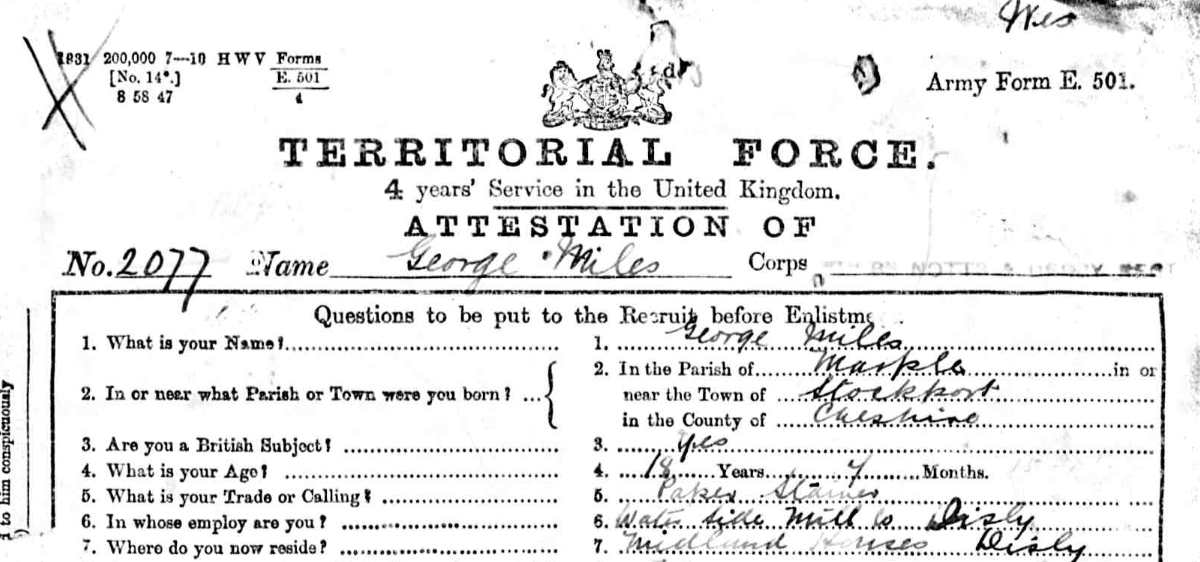 Wes
1831 200,000 7—10 H W V Forms
[No. 14*.] E. 501
8 58 47 4
Army Form E. 501.
TERRITORIAL FORCE.
4 years' Service in the United Kingdom.
ATTESTATION OF
No. 2077 Name George Miles Corps
Questions to be put to the Recruit before Enlistme
1. What is your Name? 1. George Miles
2. In or near what Parish or Town were you born? 2. In the Parish of Marple in or
near the Town of Stockport
in the County of Cheshire
3. Are you a British Subject? 3. Yes
4. What is your Age? 4. 18 Years 7 Months.
5. What is your Trade or Calling? 5. Paper Stainer
6. In whose employ are you? 6. Water Side Mill Co Disly
7. Where do you now reside? 7. Midland Houses Disly
d to him conspicuously